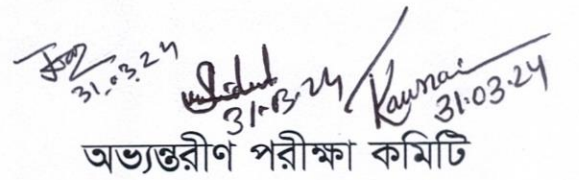 31.03.24 31.03.24 Kawsar 31.03.24
অভ্যন্তরীণ পরীক্ষা কমিটি